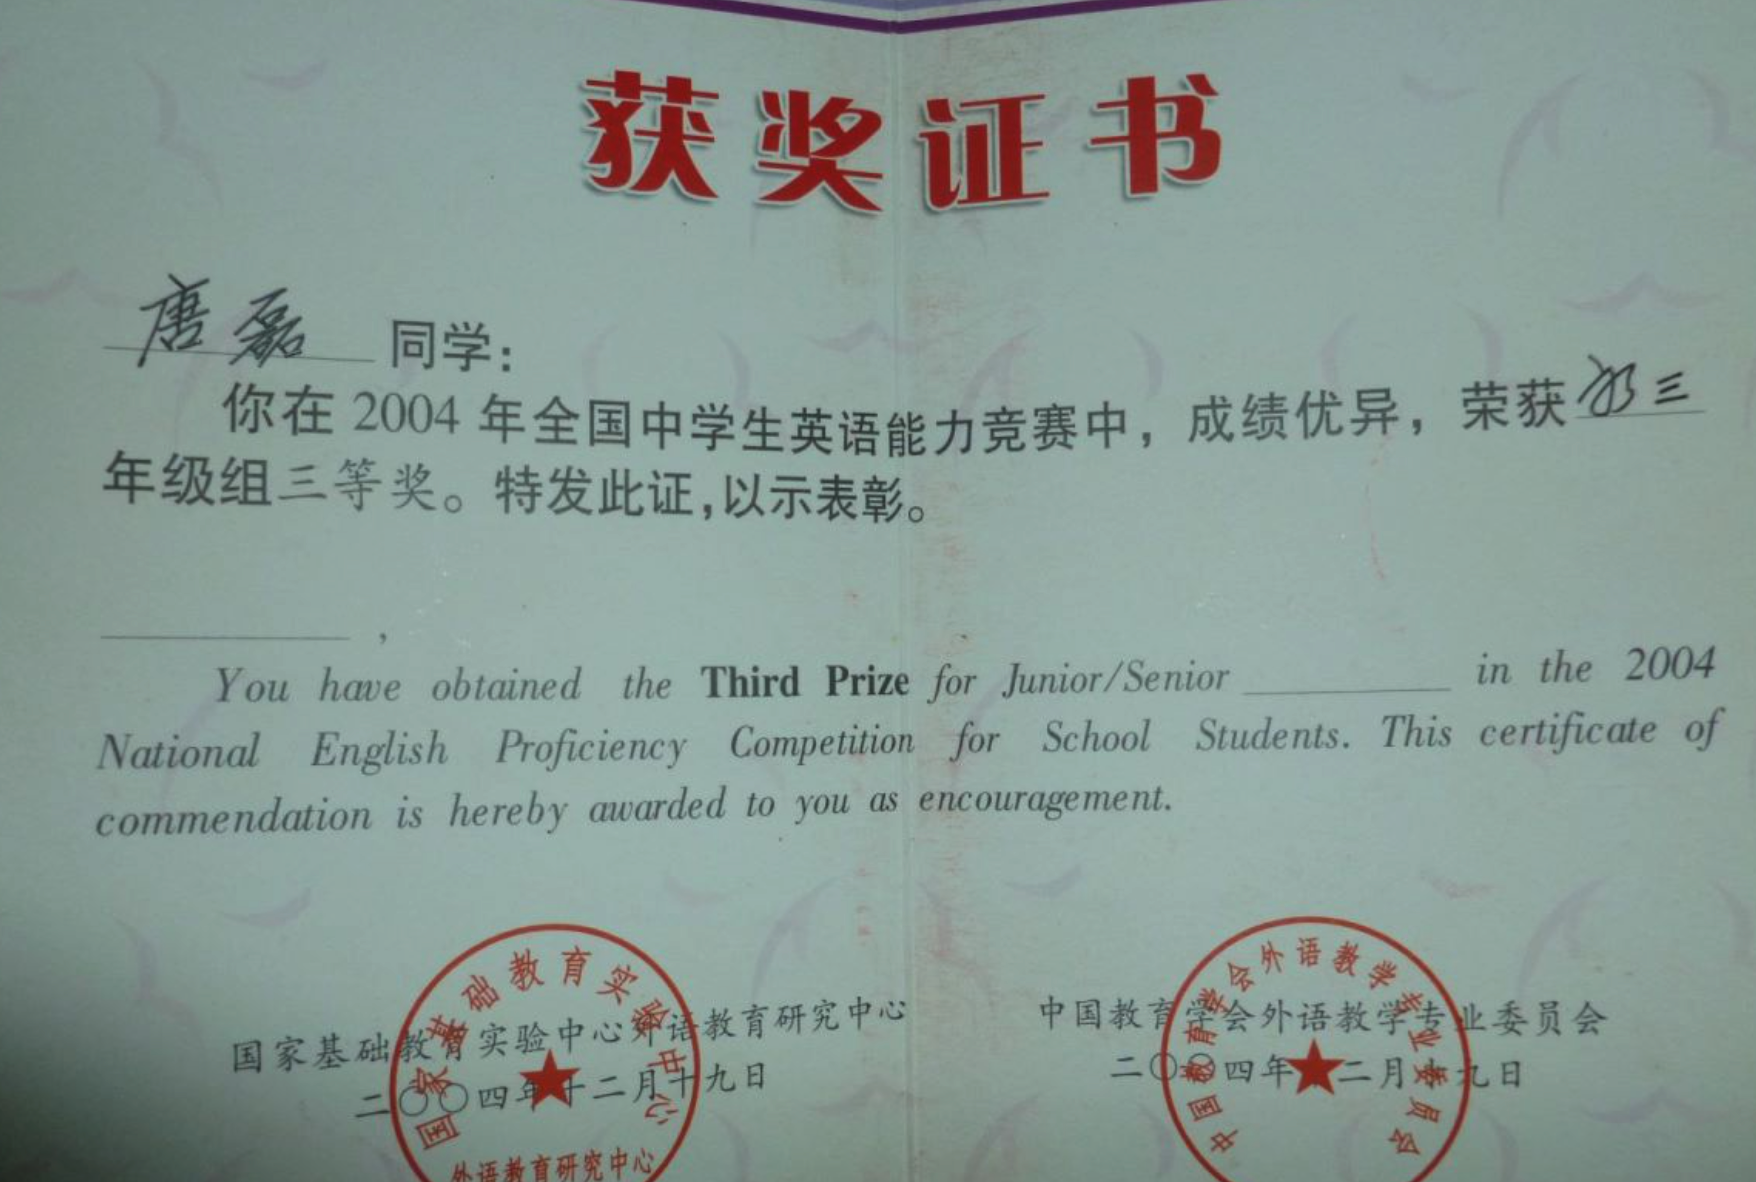 获奖证书
唐磊 同学：
你在 2004 年全国中学生英语能力竞赛中，成绩优异，荣获初三
年级组三等奖。特发此证，以示表彰。
,
You have obtained the Third Prize for Junior/Senior in the 2004
National English Proficiency Competition for School Students. This certificate of
commendation is hereby awarded to you as encouragement.
国家基础教育实验中心外语教育研究中心
二〇〇四年十二月十九日
国家基础教育实验中心
外语教育研究中心
中国教育学会外语教学专业委员会
二〇〇四年十二月十九日
中国教育学会外语教学专业委员会